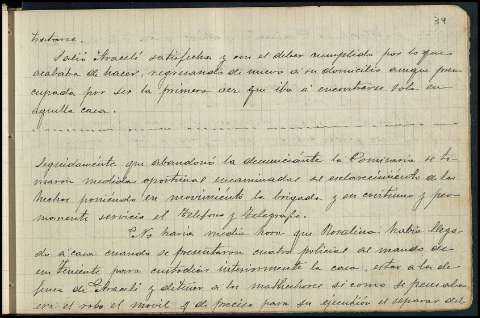 39
tratara.
Salió Araceli satisfecha y con el deber cumplido por lo que
acababa de hacer, regresando de nuevo a su domicilio aunque preo
cupada por ser la primera vez que iba a encontrarse sola en
aquella casa.
Seguidamente que abandonó la denunciante la Comisaria se to
maron medidas oportunas encaminadas al esclarecimiento de los
hechos poniendo en movimiento la brigada y en continuo y per
manente servicio el teléfono y telégrafo.
No haria media hora que Rosalina habia llega
do a casa cuando se presentaron cuatro policias al mando de
un teniente para custodiar interiormente la casa, estar a la de
fensa de Araceli y detener a los malhechores si como se pensaba
era el robo el movil y de preciso para su ejecución el separar del